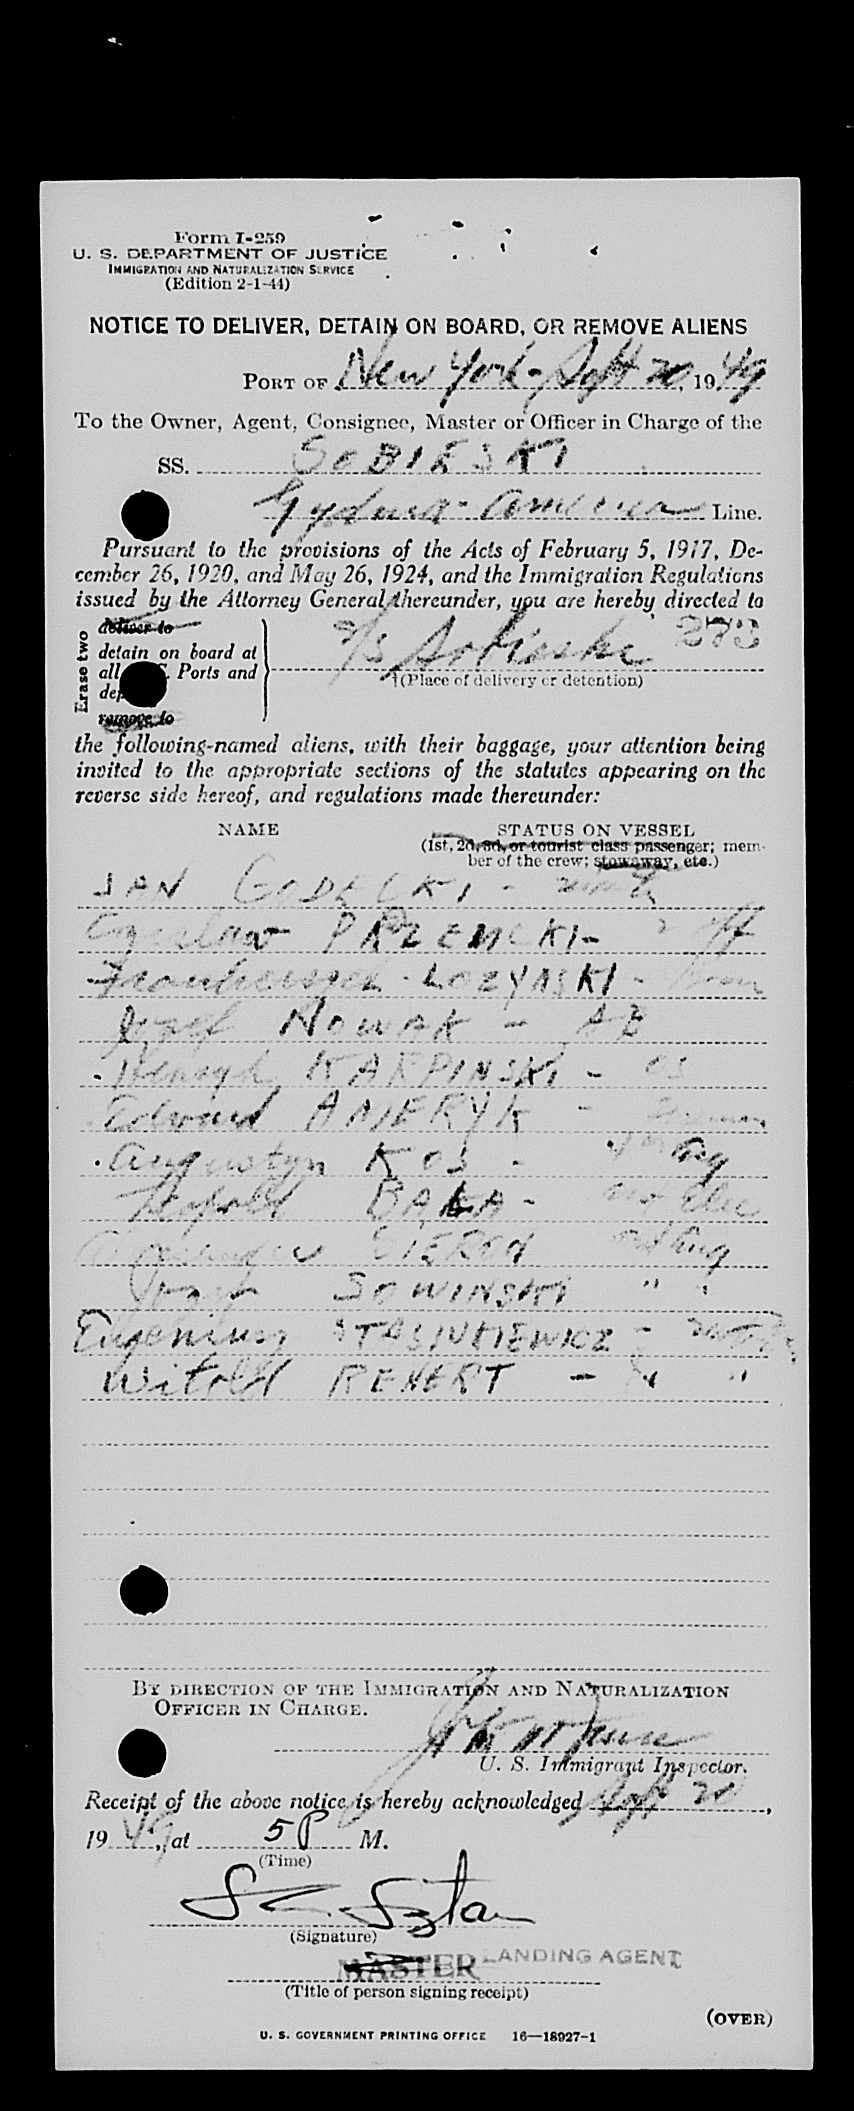 Form I-259
U. S. DEPARTMENT OF JUSTICE
IMMIGRATION AND NATURALIZATION SERVICE
(Edition 2-1-44)
NOTICE TO DELIVER, DETAIN ON BOARD, OR REMOVE ALIENS
PORT OF New York - Sept 20, 1949
To the Owner, Agent, Consignee, Master or Officer in Charge of the
SS. SOBIESKI
Gydnia-America Line.
Pursuant to the provisions of the Acts of February 5, 1917, De-
cember 26, 1920, and May 26, 1924, and the Immigration Regulations
issued by the Attorney General thereunder, you are hereby directed to
Erase two
deliver to
detain on board at
all Ports and
remove to
Sobieski 273
†(Place of delivery or detention)
the following-named aliens, with their baggage, your attention being
invited to the appropriate sections of the statutes appearing on the
reverse side hereof, and regulations made thereunder:
NAME STATUS ON VESSEL
(1st, 2d, 3d, or tourist class passenger; mem-
ber of the crew; stowaway, etc.)
JAN GODECKI -
PRZEMCKI - off
LOZYNSKI -
Jozef NOWAK - AB
Henryk KARPINSKI - OS
Edward ANIERYK -
Augustyn KOS - Eng
BAKA - Elec
Eng
SOWINSKI " "
Eugeniusz STASIUKIEWICZ -
Witold RENERT - " "
BY DIRECTION OF THE IMMIGRATION AND NATURALIZATION
OFFICER IN CHARGE.
U. S. Immigrant Inspector.
Receipt of the above notice is hereby acknowledged Sept 20,
1949, at 5 P M.
(Time)
(Signature)
MASTER LANDING AGENT
(Title of person signing receipt)
(OVER)
U. S. GOVERNMENT PRINTING OFFICE 16—18927-1